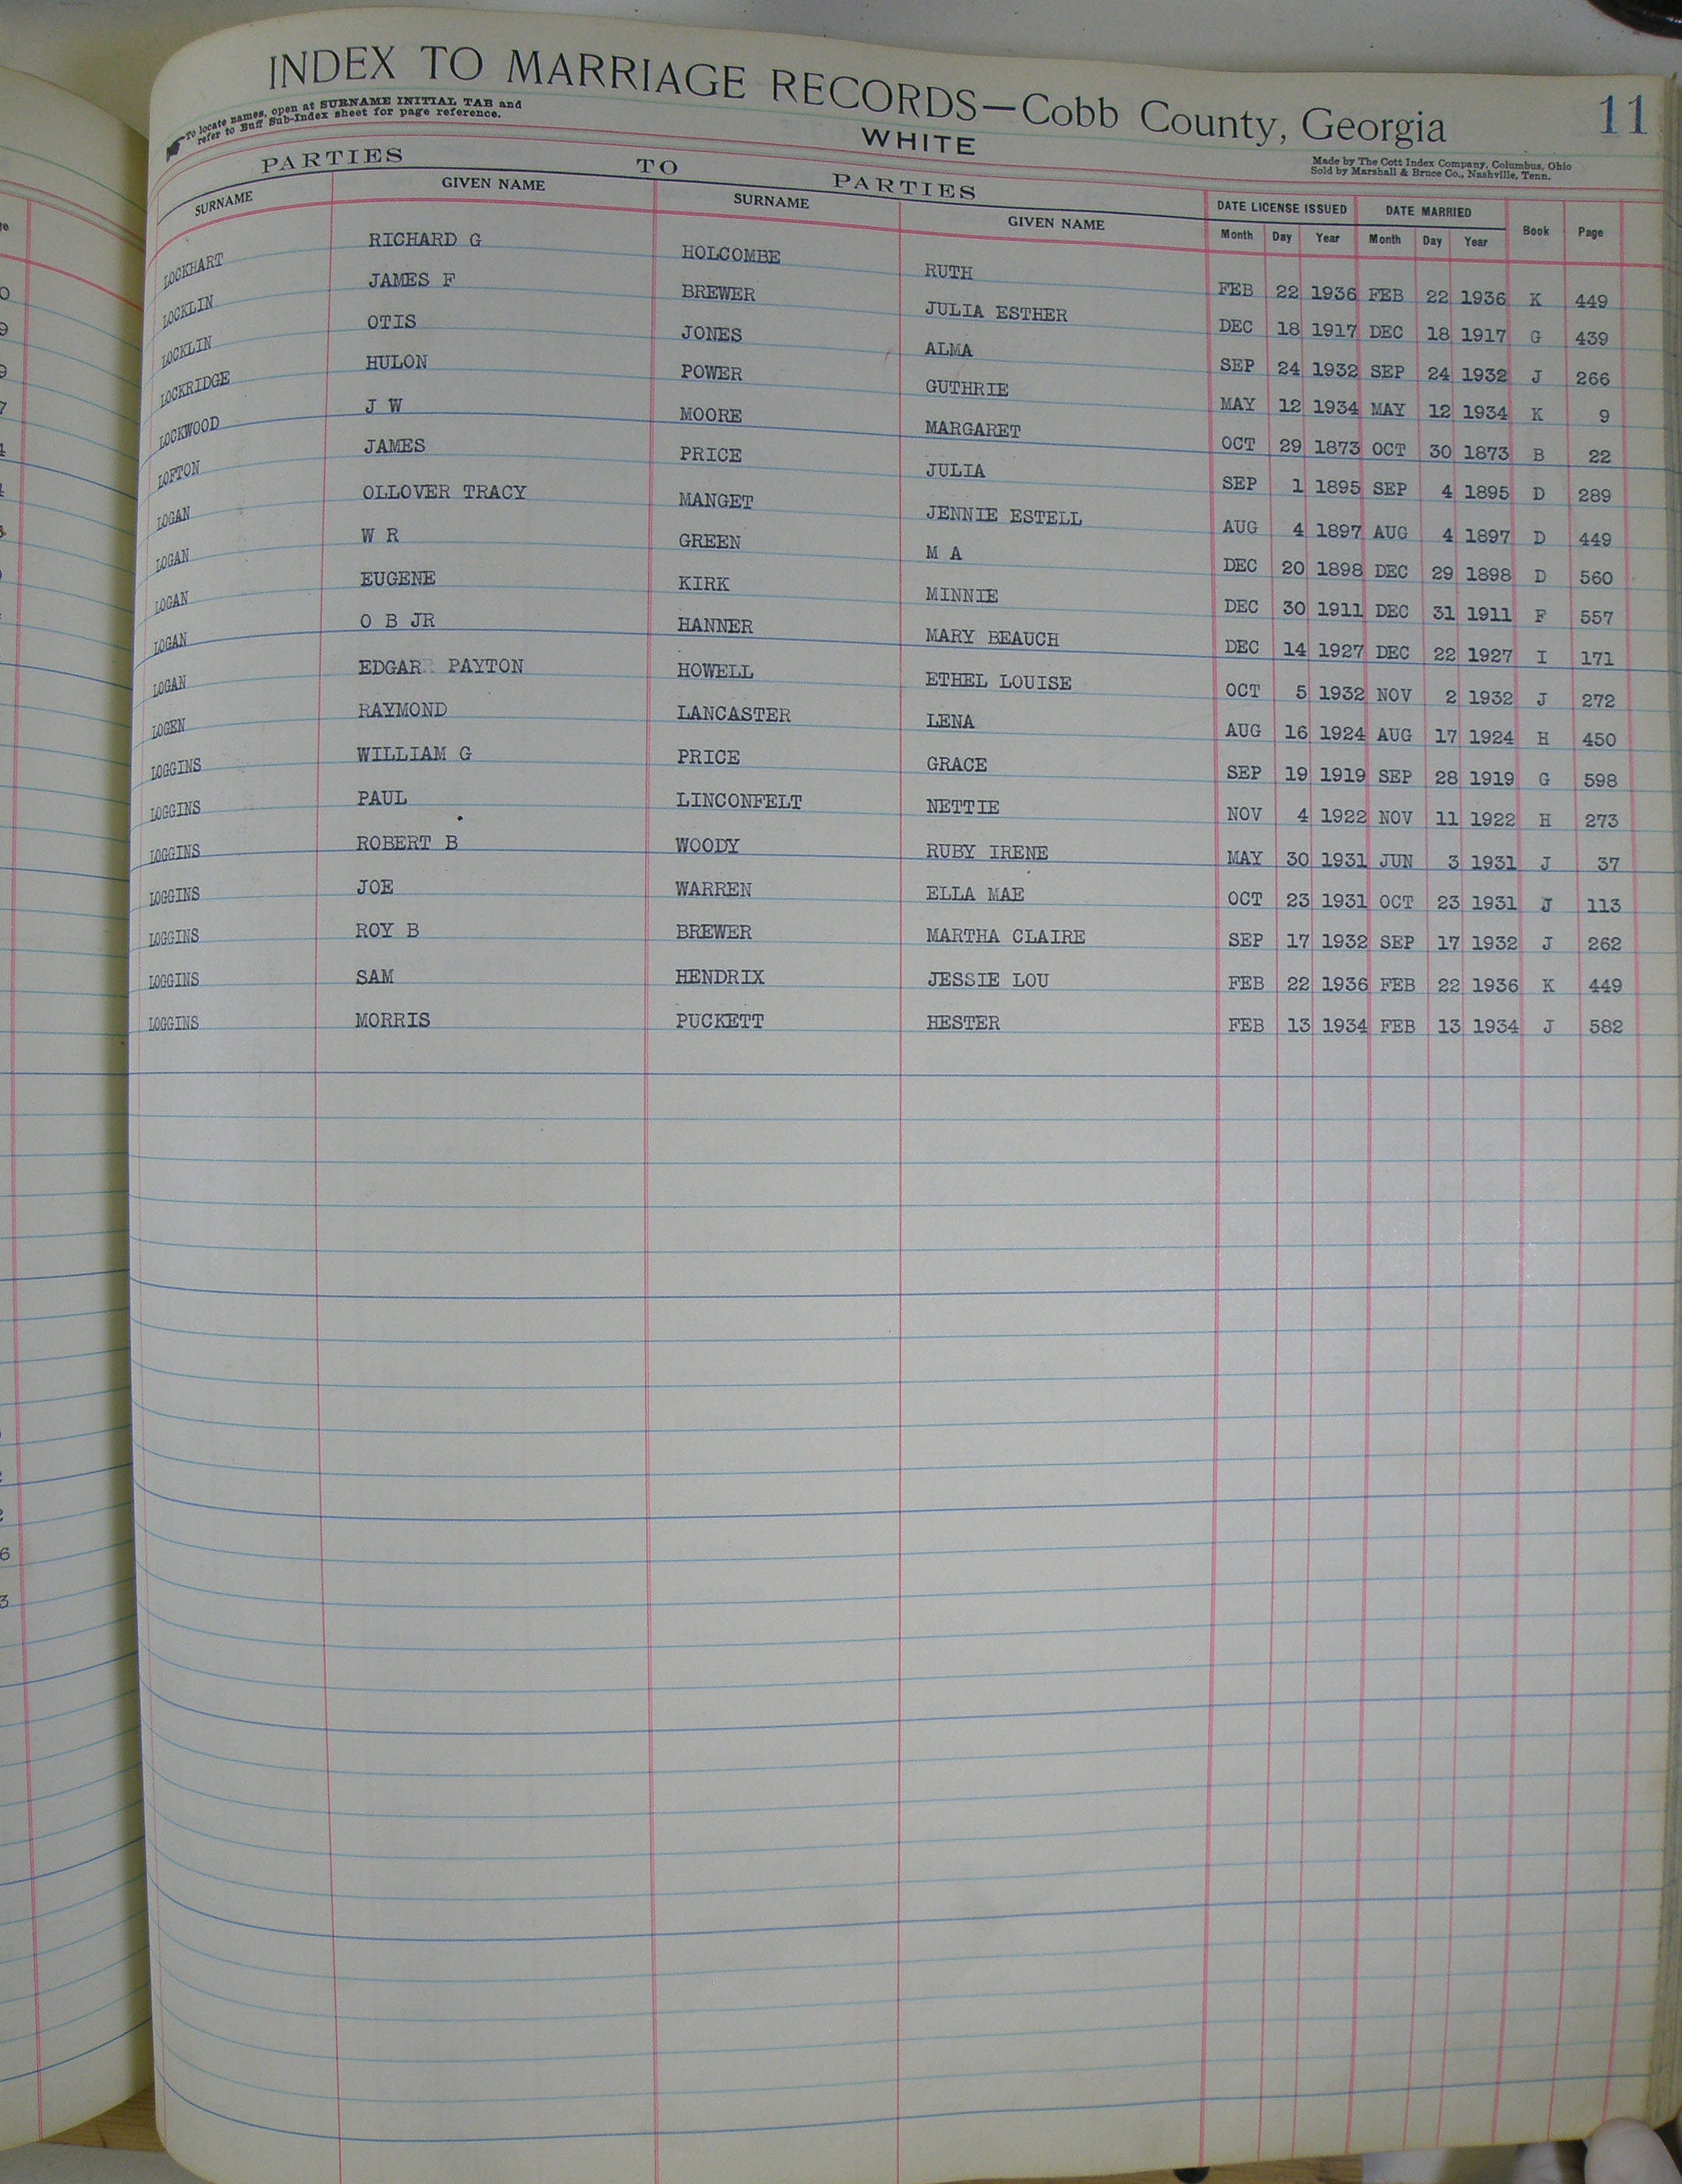 INDEX TO MARRIAGE RECORDS—Cobb County, Georgia 11
To locate names, open at SURNAME INITIAL TAB and
refer to Buff Sub-Index sheet for page reference.
WHITE
Made by The Cott Index Company, Columbus, Ohio
Sold by Marshall & Bruce Co., Nashville, Tenn.
PARTIES TO PARTIES
SURNAME GIVEN NAME SURNAME GIVEN NAME DATE LICENSE ISSUED DATE MARRIED Book Page
Month Day Year Month Day Year
LOCKHART RICHARD G HOLCOMBE RUTH FEB 22 1936 FEB 22 1936 K 449
LOCKLIN JAMES F BREWER JULIA ESTHER DEC 18 1917 DEC 18 1917 G 439
LOCKLIN OTIS JONES ALMA SEP 24 1932 SEP 24 1932 J 266
LOCKRIDGE HULON POWER GUTHRIE MAY 12 1934 MAY 12 1934 K 9
LOCKWOOD J W MOORE MARGARET OCT 29 1873 OCT 30 1873 B 22
LOFTON JAMES PRICE JULIA SEP 1 1895 SEP 4 1895 D 289
LOGAN OLLOVER TRACY MANGET JENNIE ESTELL AUG 4 1897 AUG 4 1897 D 449
LOGAN W R GREEN M A DEC 20 1898 DEC 29 1898 D 560
LOGAN EUGENE KIRK MINNIE DEC 30 1911 DEC 31 1911 F 557
LOGAN O B JR HANNER MARY BEAUCH DEC 14 1927 DEC 22 1927 I 171
LOGAN EDGAR PAYTON HOWELL ETHEL LOUISE OCT 5 1932 NOV 2 1932 J 272
LOGEN RAYMOND LANCASTER LENA AUG 16 1924 AUG 17 1924 H 450
LOGGINS WILLIAM G PRICE GRACE SEP 19 1919 SEP 28 1919 G 598
LOGGINS PAUL LINCONFELT NETTIE NOV 4 1922 NOV 11 1922 H 273
LOGGINS ROBERT B WOODY RUBY IRENE MAY 30 1931 JUN 3 1931 J 37
LOGGINS JOE WARREN ELLA MAE OCT 23 1931 OCT 23 1931 J 113
LOGGINS ROY B BREWER MARTHA CLAIRE SEP 17 1932 SEP 17 1932 J 262
LOGGINS SAM HENDRIX JESSIE LOU FEB 22 1936 FEB 22 1936 K 449
LOGGINS MORRIS PUCKETT HESTER FEB 13 1934 FEB 13 1934 J 582